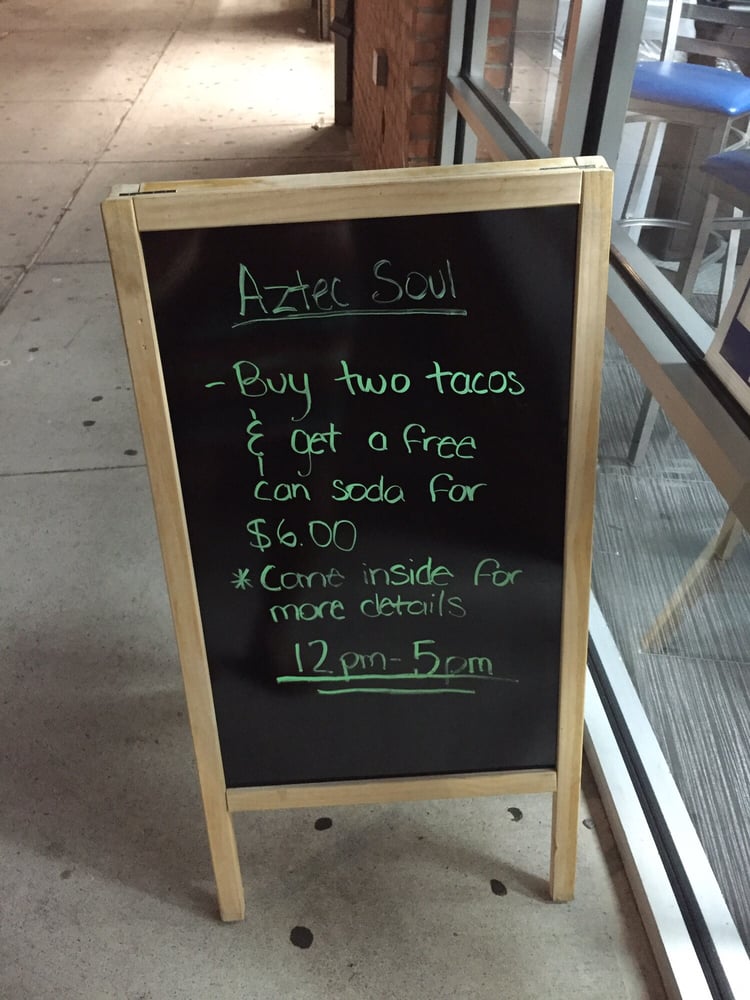 Aztec Soul
- Buy two tacos
& get a free
can soda for
$6.00
* Come inside for
more details
12pm-5pm